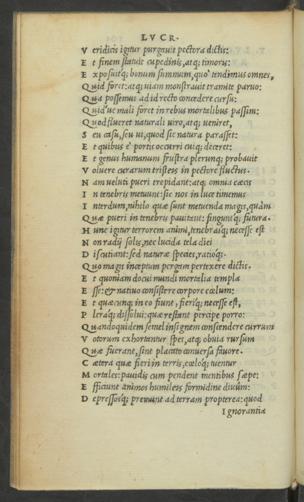 LVCR.
V eridicis igitur purgauit pectora dictis:
E t finem statuit cupedinis, atq; timoris:
E xposuitq; bonum summum, quo tendimus omnes,
Quid foret: atq; uiam monstrauit tramite paruo:
Qua possemus ad id recto concedere cursu:
Quid ue mali foret in rebus mortalibus passim:
Quod flueret naturali uiro, atq; ueniret,
S eu casu, seu ui, quod sic natura parasset:
E t quibus e portis occurri cuiq; deceret:
E t genus humanum frustra plerunq; probauit
V oluere curarum tristeis in pectore fluctus.
N am ueluti pueri trepidant: atq; omnia cæcis
I n tenebris metuunt: sic nos in luce timemus
I nterdum, nihilo quæ sunt metuenda magis, quàm
Quæ pueri in tenebris pauitent: finguntq; futura.
H unc igitur terrorem animi, tenebrasq; necesse est
N on radij solis, nec lucida tela diei
D iscutiant: sed naturæ species, ratioq;.
Quo magis inceptum pergam pertexere dictis.
E t quoniam docui mundi mortalia templa
E sse: & natiuo consistere corpore cœlum:
E t quæcunq; in eo fiunt, fieriq; necesse est,
P leraq; dissolui: quæ restant percipe porro:
Quandoquidem semel insignem conscendere currum
V otorum exhortentur spes, atq; obuia rursum
Quæ fuerant, sine placato conuersa fauore.
C ætera quæ fieri in terris, cœloq; tuentur
M ortales: pauidis cum pendent mentibus sæpe:
E fficiunt animos humileis formidine diuûm:
D epressosq; premunt ad terram propterea: quod
Ignorantia